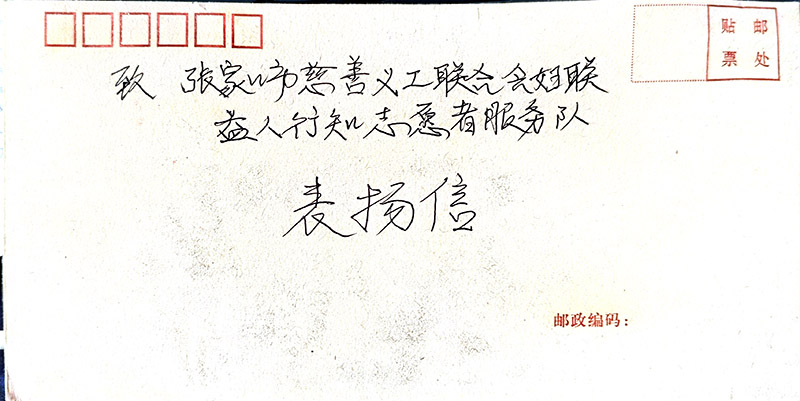 贴 邮
票 处
致 张家口市慈善义工联合会妇联
益人行知志愿者服务队
表扬信
邮政编码：